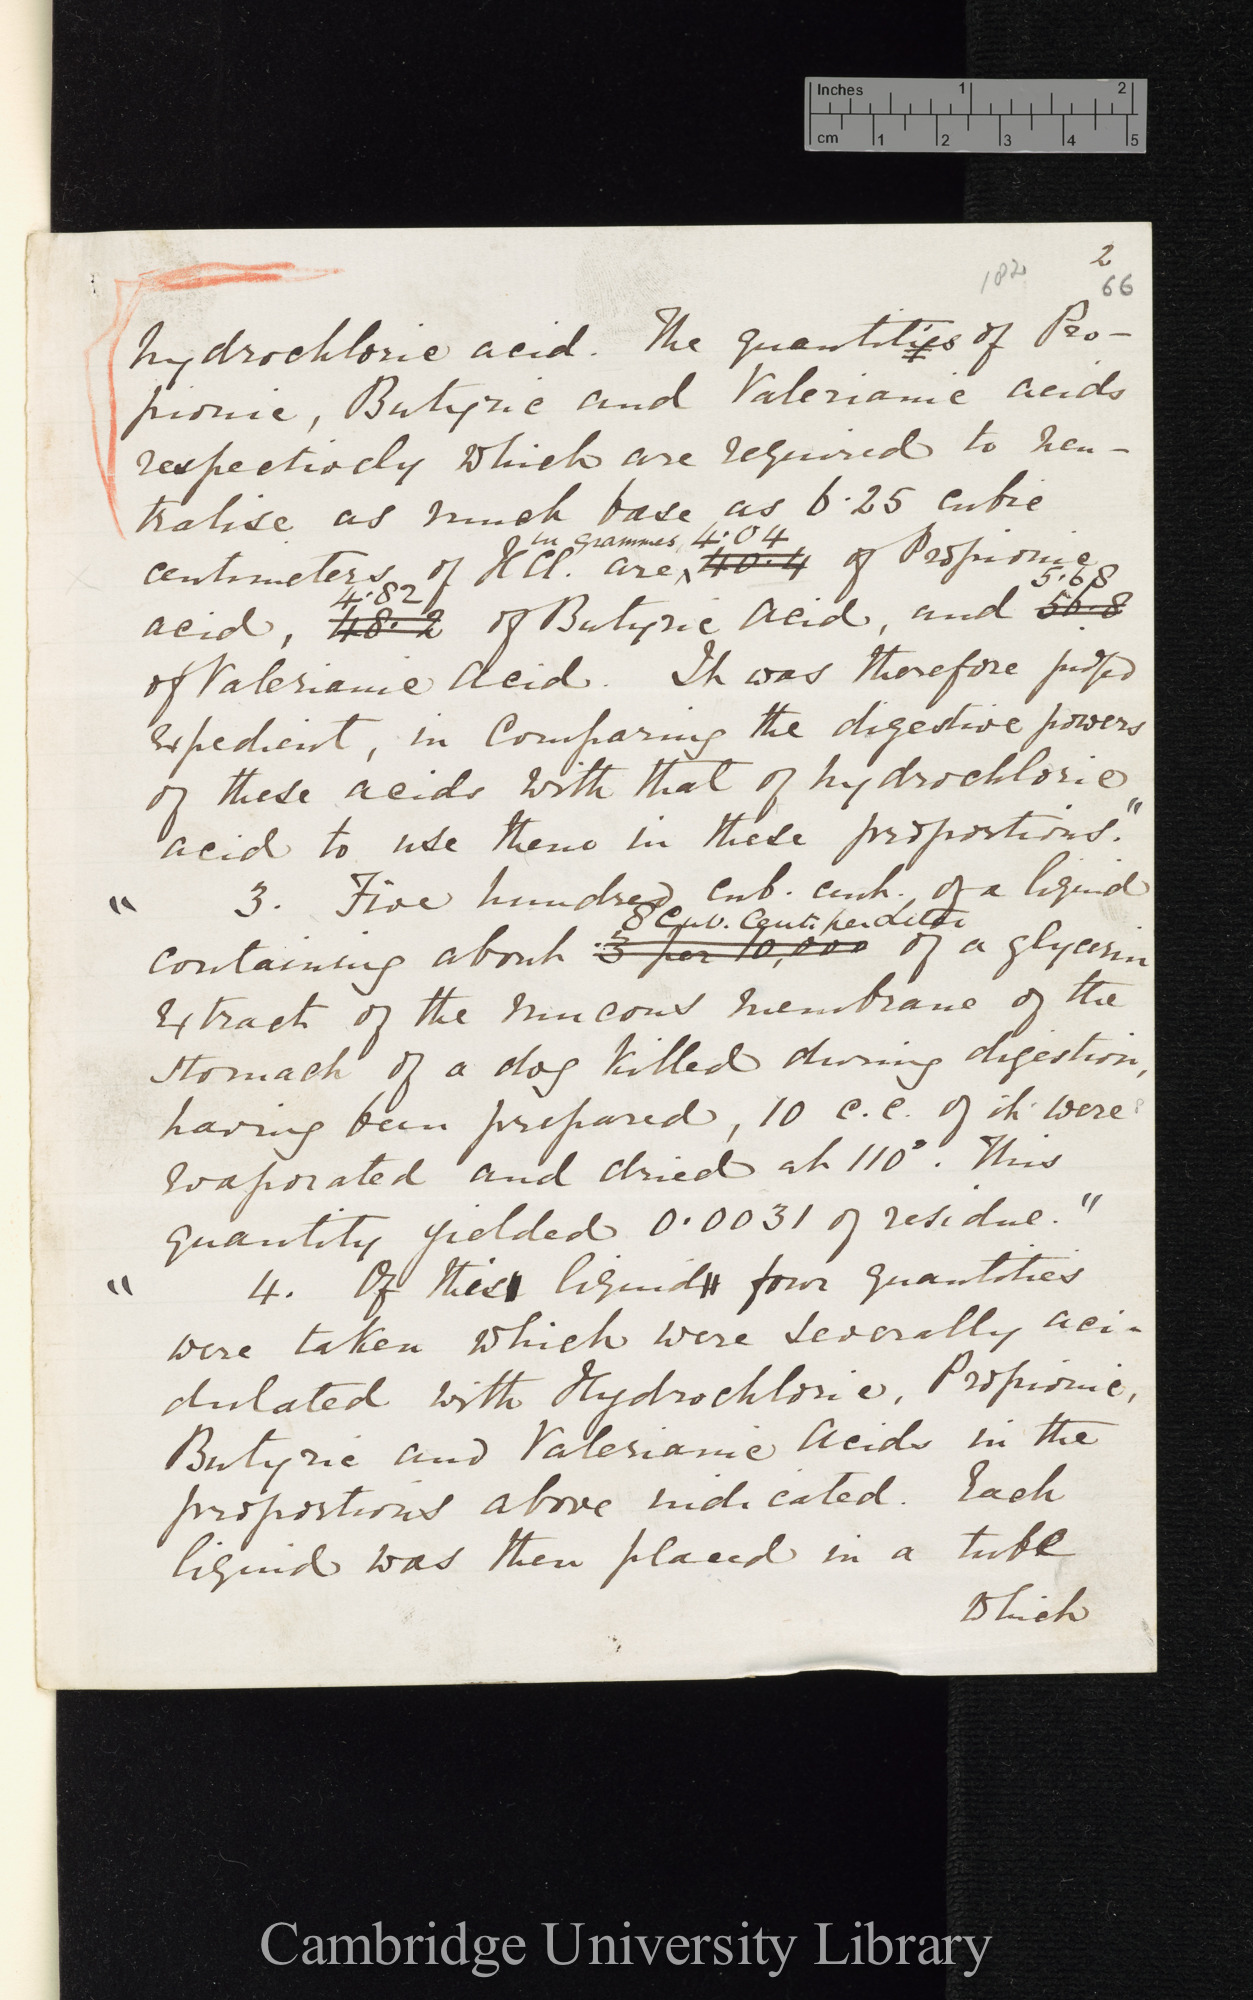 Inches 1 2
cm 1 2 3 4 5
2
182 66
hydrochloric acid. The quantities of Pro-
pionic, Butyric and Valerianic acids
respectively which are required to neu-
tralise as much base as 6.25 cubic
in grammes 4.04
centimeters of HCl. are 40.4 of Propionic
4.82 5.68
acid, 48.2 of Butyric Acid, and 56.8
of Valerianic Acid. It was therefore judged
expedient, in comparing the digestive powers
of these acids with that of hydrochloric
acid to use them in these proportions."
" 3. Five hundred cub. cent. of a liquid
8 Cub. Cent. per litre
containing about 3 per 10,000 of a glycerin
extract of the mucous membrane of the
stomach of a dog killed during digestion,
having been prepared, 10 c.c. of it were
evaporated and dried at 110°. This
quantity yielded 0.0031 of residue."
" 4. Of this liquid four quantities
were taken which were severally aci-
dulated with Hydrochloric, Propionic,
Butyric and Valerianic Acids in the
proportions above indicated. Each
liquid was then placed in a tube
which
Cambridge University Library